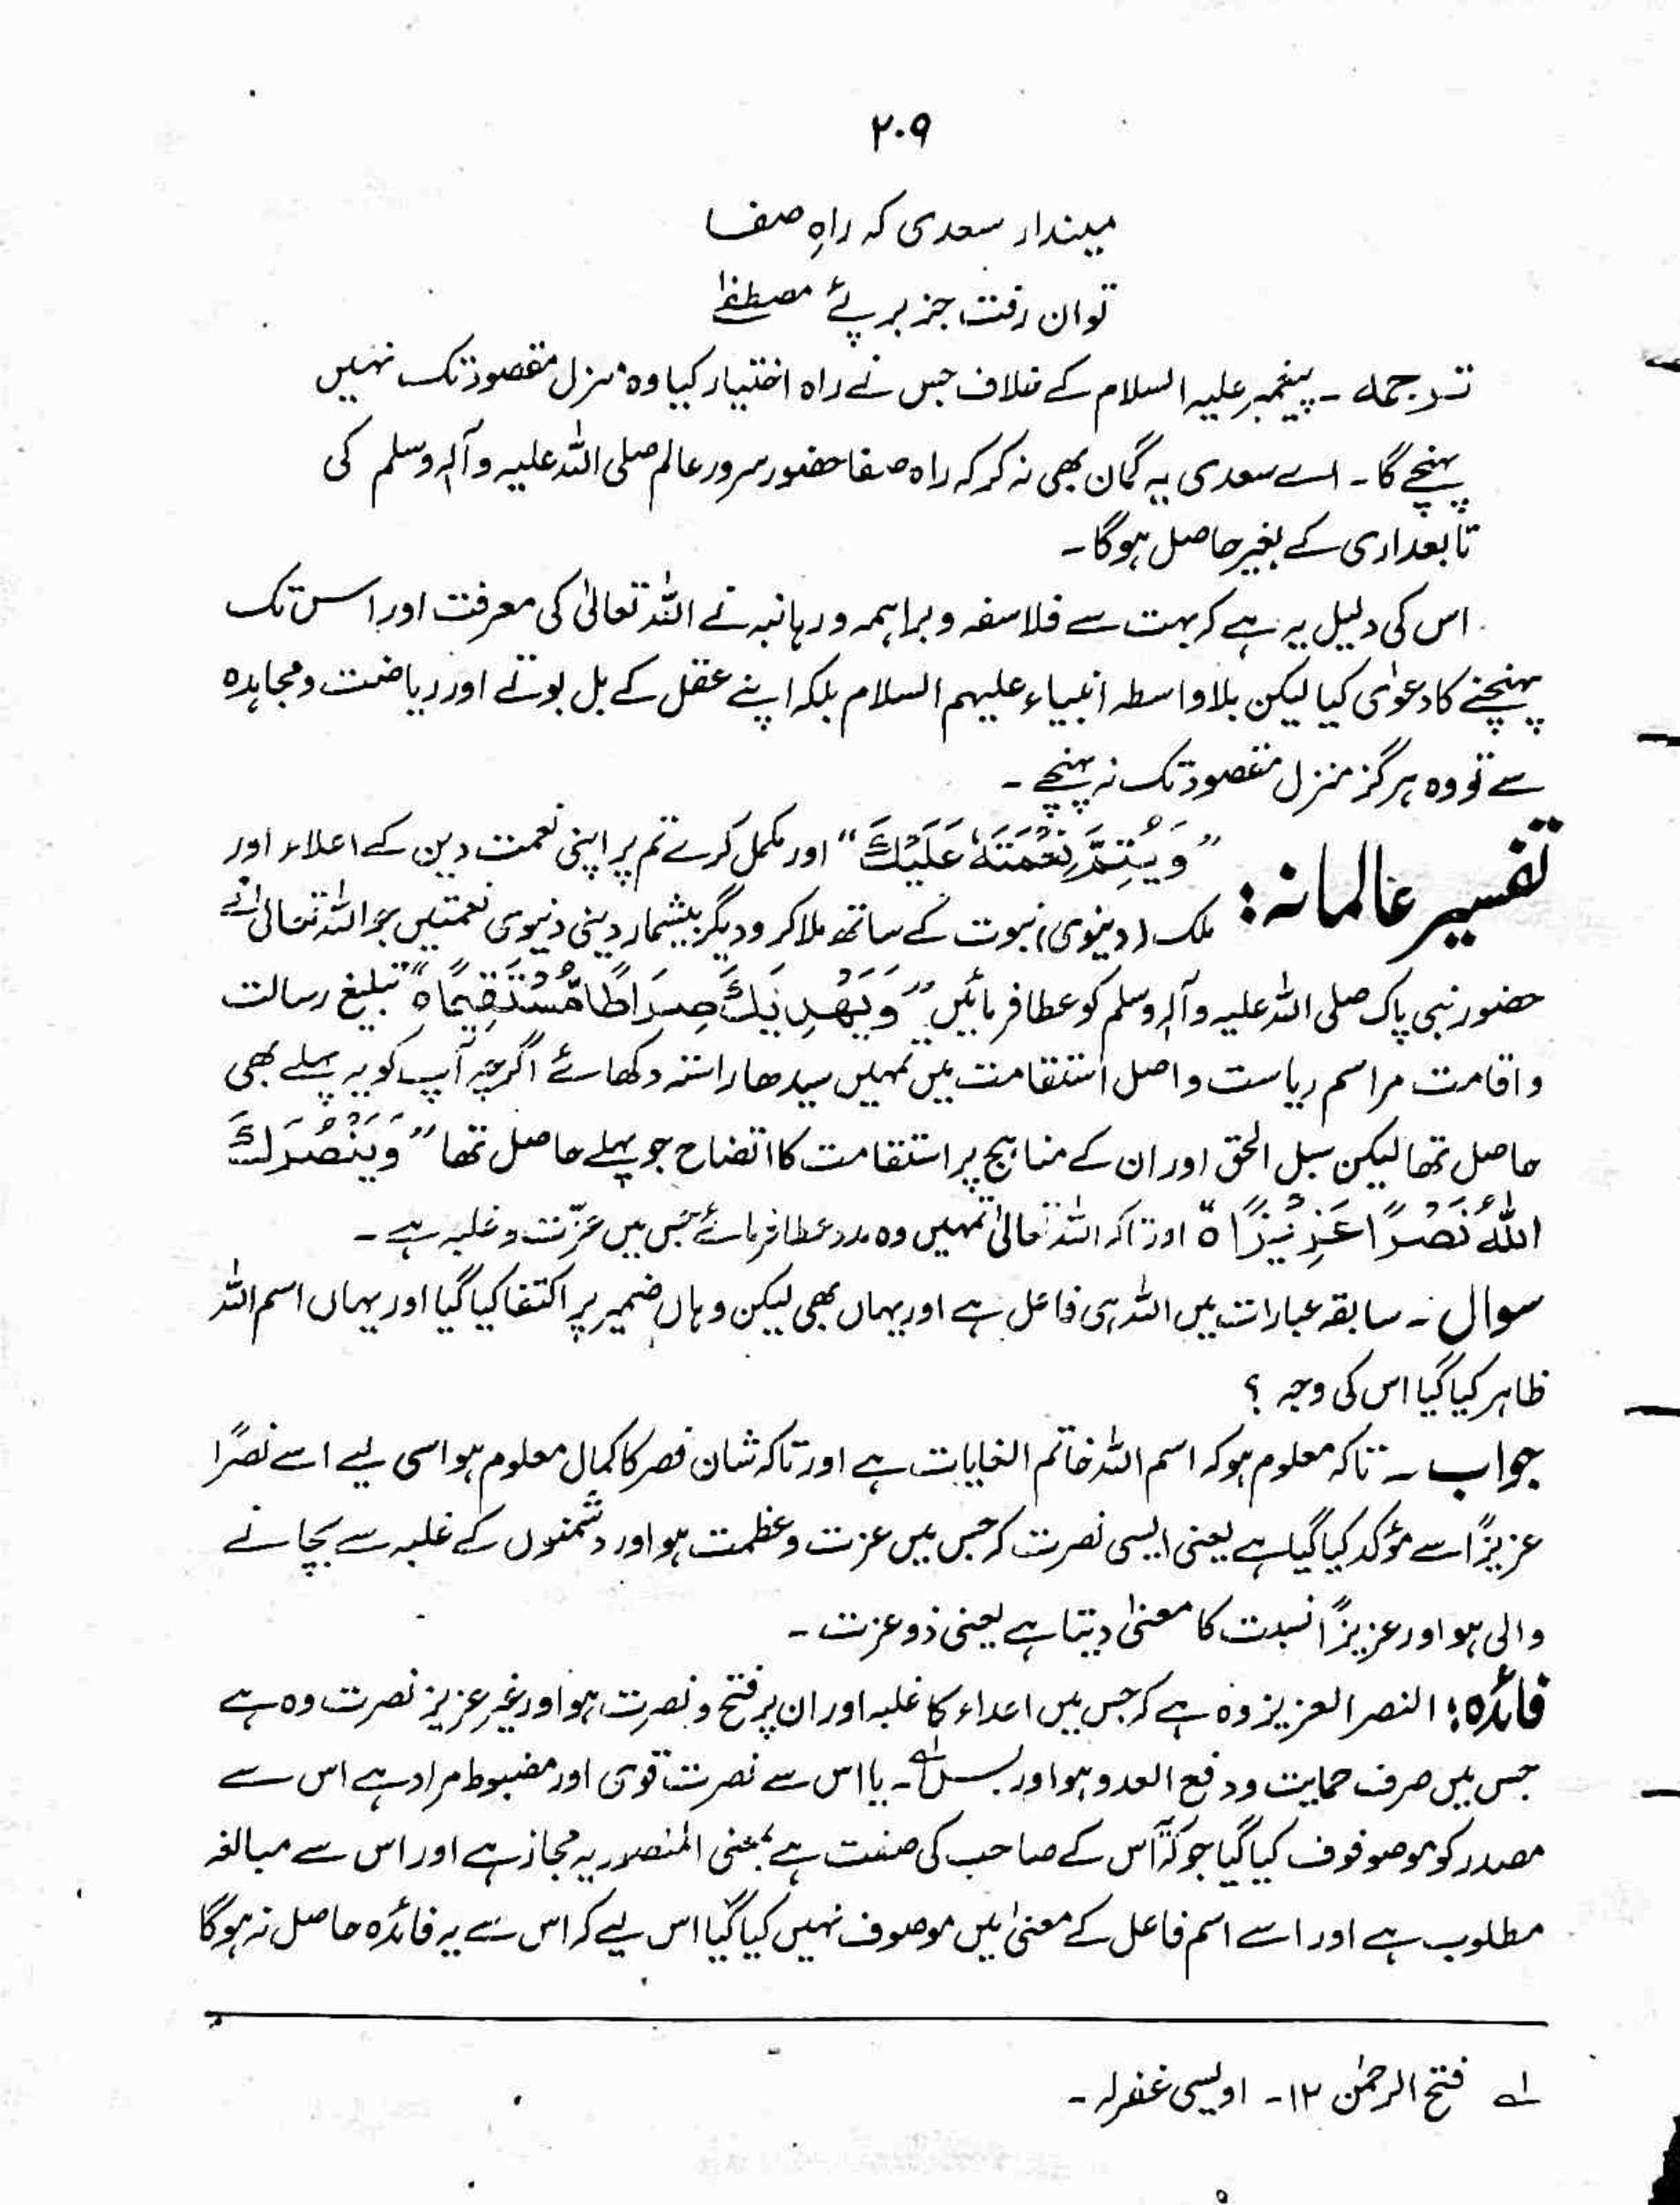 ۲۰۹
میندار سعدی کہ راہِ صفا
تواں رفت جز بر پئے مصطفےٰ
ترجمہ ۔ پیغمبر علیہ السلام کے خلاف جس نے راہ اختیار کیا وہ منزل مقصود تک نہیں
پہنچے گا ۔ اے سعدی یہ گمان بھی نہ کر کہ راہ صفا حضور سرور عالم صلی اللہ علیہ وآلہ وسلم کی
تابعداری کے بغیر حاصل ہو گا ۔
اس کی دلیل یہ ہے کہ بہت سے فلاسفہ و براہمہ و رہانبہ نے اللہ تعالیٰ کی معرفت اور اس تک
پہنچنے کا دعوٰی کیا لیکن بلا واسطہ انبیاء علیہم السلام بلکہ اپنے عقل کے بل بوتے اور ریاضت و مجاہدہ
سے تو وہ ہرگز منزل مقصود تک نہ پہنچے ۔
تفسیر عالمانہ : ”وَيُتِمَّ نِعْمَتَهٗ عَلَيْكَ“ اور مکمل کرے تم پر اپنی نعمت دین کے اعلاء اور
ملک (دینوی) نبوت کے ساتھ ملا کر و دیگر بیشمار دینی دنیوی نعمتیں جو اللہ تعالیٰ نے
حضور نبی پاک صلی اللہ علیہ وآلہ وسلم کو عطا فرمائیں ”وَيَهْدِيَكَ صِرَاطًا مُّسْتَقِيْمًا ہ“ تبلیغ رسالت
و اقامت مراسم ریاست و اصل استقامت میں تمہیں سیدھا راستہ دکھائے اگرچہ آپ کو یہ پہلے بھی
حاصل تھا لیکن سبل الحق اور ان کے مناہج پر استقامت کا اتضاح جو پہلے حاصل تھا ”وَيَنْصُرَكَ
اللّٰهُ نَصْرًا عَزِيْزًا ہ اور تاکہ اللہ تعالیٰ تمہیں وہ مدد عطا فرمائے جس میں عزّت و غلبہ ہے ۔
سوال ۔ سابقہ عبارات میں اللہ ہی فاعل ہے اور یہاں بھی لیکن وہاں ضمیر پر اکتفا کیا گیا اور یہاں اسم اللہ
ظاہر کیا گیا اس کی وجہ ؟
جواب ۔ تاکہ معلوم ہو کہ اسم اللہ خاتم الغایات ہے اور تاکہ شان نصر کا کمال معلوم ہو اسی لیے اسے نصرًا
عزیزًا سے مؤکد کیا گیا ہے یعنی ایسی نصرت کہ جس میں عزت و عظمت ہو اور دشمنوں کے غلبہ سے بچانے
والی ہو اور عزیزًا نسبت کا معنیٰ دیتا ہے یعنی ذو عزت ۔
فائدہ : النصر العزیز وہ ہے کہ جس میں اعداء کا غلبہ اور ان پر فتح و نصرت ہو اور غیر عزیز نصرت وہ ہے
جس میں صرف حمایت و دفع العدو ہو اور بس لہ ۔ یا اس سے نصرت قوی اور مضبوط مراد ہے اس سے
مصدر کو موصوفوف کیا گیا جو کہ اس کے صاحب کی صفت ہے بمعنی المنصور یہ مجاز ہے اور اس سے مبالغہ
مطلوب ہے اور اسے اسم فاعل کے معنیٰ میں موصوف نہیں کیا گیا اس لیے کہ اس سے یہ فائدہ حاصل نہ ہو گا
لہ فتح الرحمٰن ۱۲ ۔ اویسی غفرلہ ۔